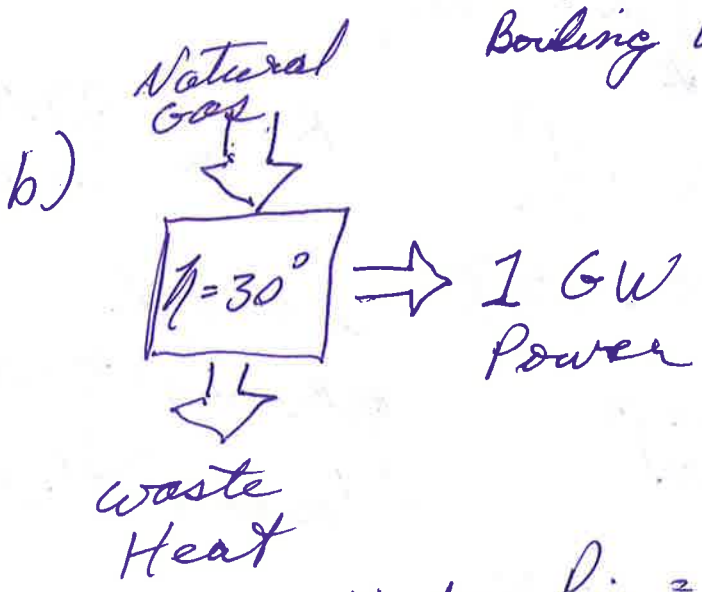 Boiling
Natural
Gas
b)
η = 30°
1 GW
Power
Waste
Heat